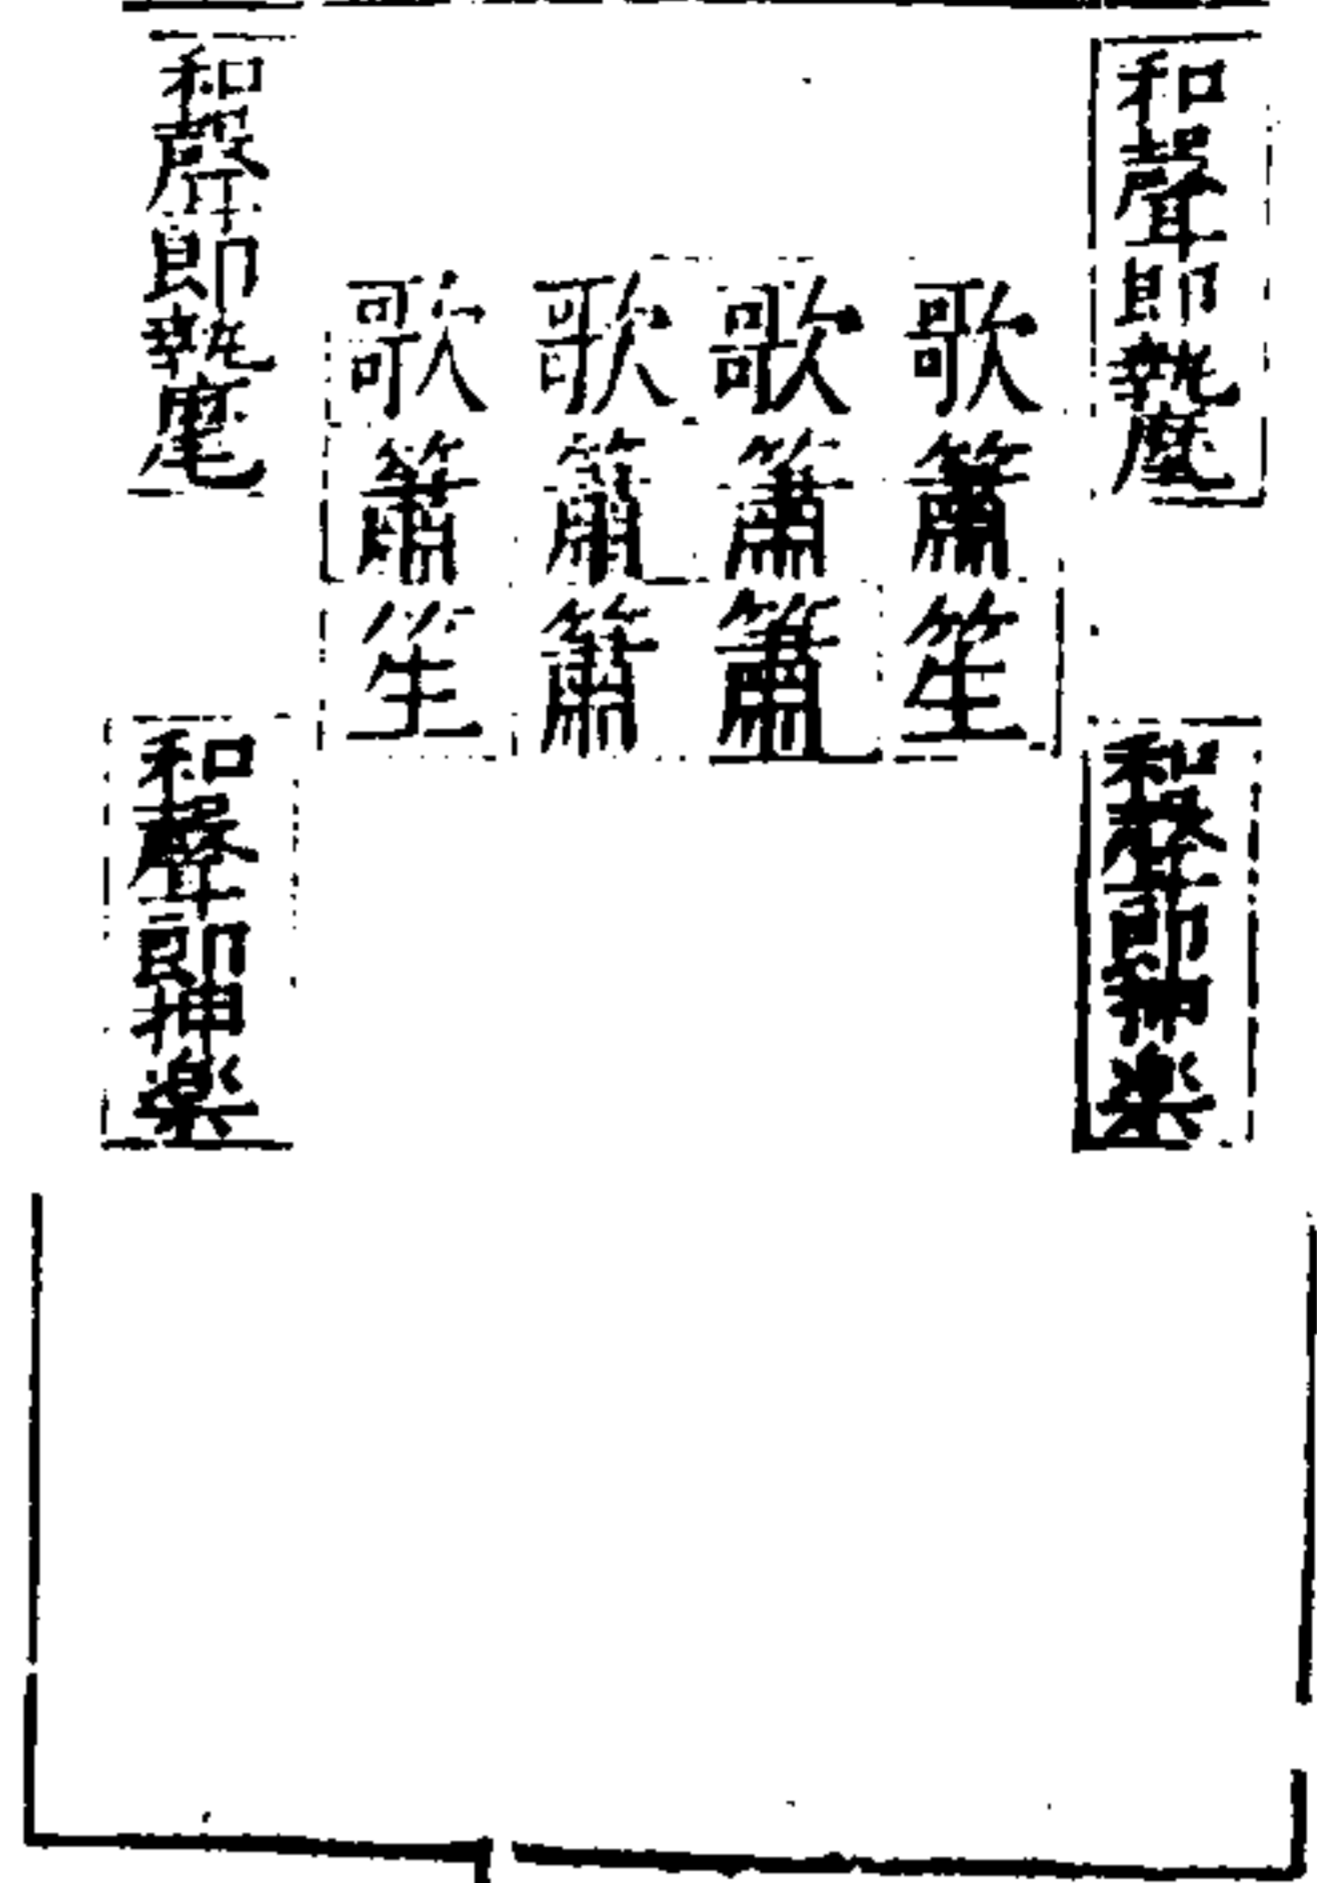 和聲郎執麾
和聲郎押楽
歌簫笙
歌簫簫
歌簫簫
歌簫笙
和聲郎執麾
和聲郎押楽